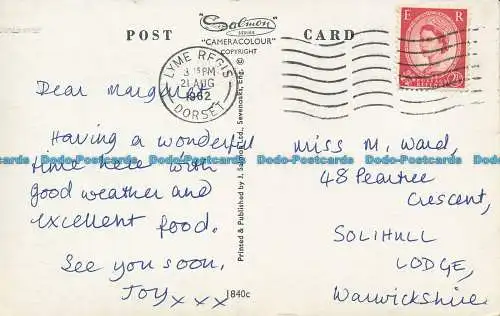 POST
Salmon
SERIES
"CAMERACOLOUR"
COPYRIGHT
CARD
E R
2½D
LYME REGIS
3 15 PM
21 AUG
1962
DORSET
Dear Margaret
Having a wonderful
time here with
good weather and
excellent food.
See you soon.
Joy x x x
Printed & Published by J. Salmon Ltd., Sevenoaks, Eng. ©
1840c
Miss M. Ward,
48 Peartree
Crescent,
SOLIHULL
LODGE,
Warwickshire
Dodo-Postcards Dodo-Postcards Dodo-Postcards Dodo-Postcards Dodo-Postcards